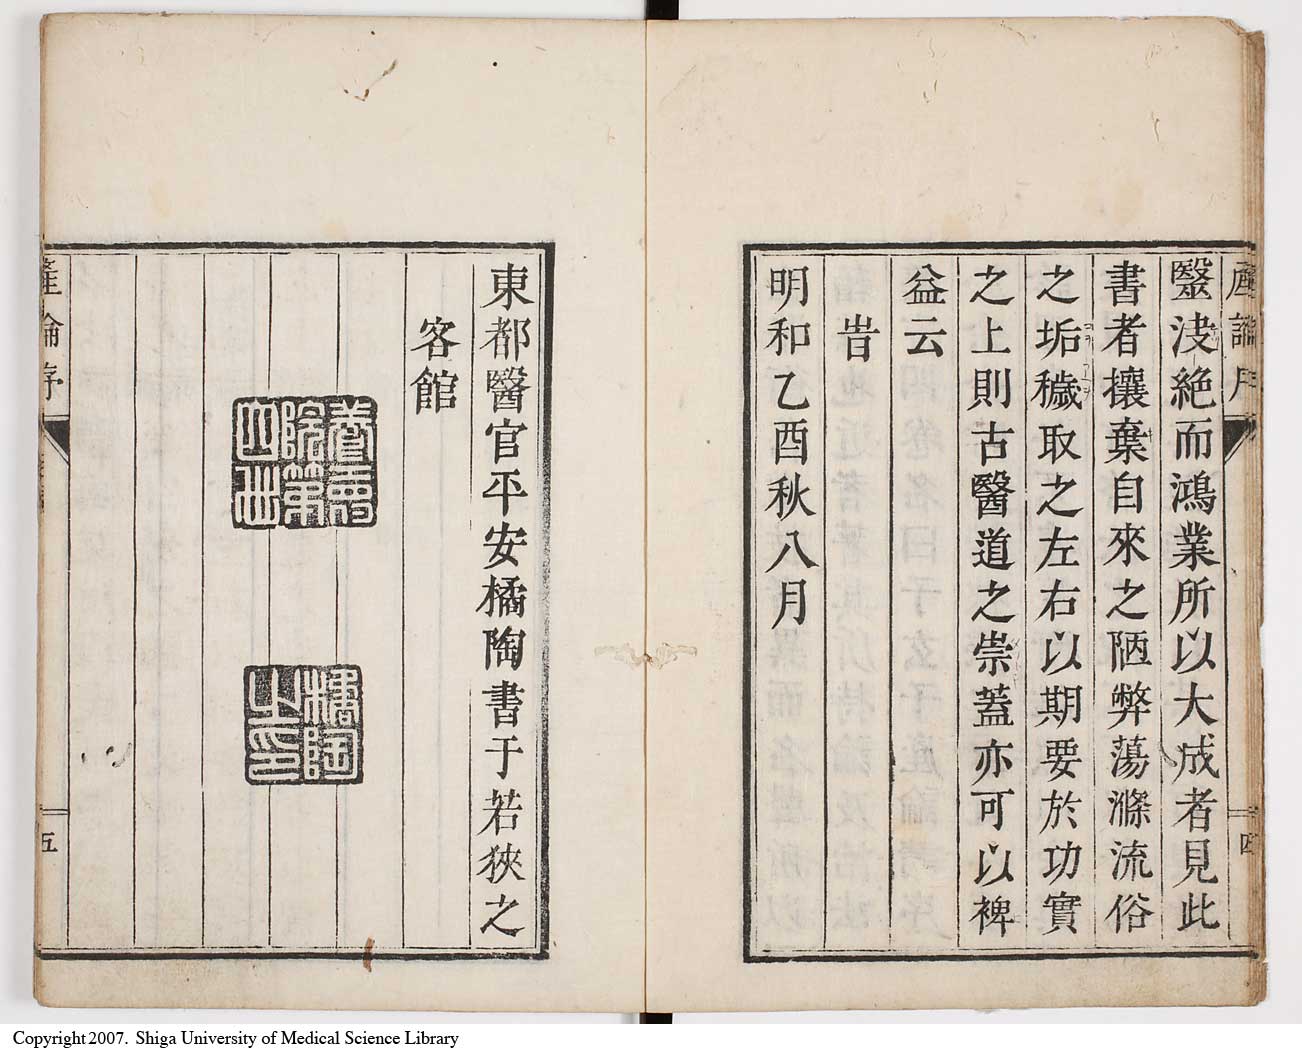 產論序
毉浅絶而鴻業所以大成者見此
書者攘棄自來之陋弊蕩滌流俗
之垢穢取之左右以期要於功實
之上則古醫道之崇蓋亦可以裨
益云
旹
明和乙酉秋八月
四
東都醫官平安橘陶書于若狹之
客館
養壽
院第
四世
橘陶
之印
產論序
五
Copyright 2007. Shiga University of Medical Science Library